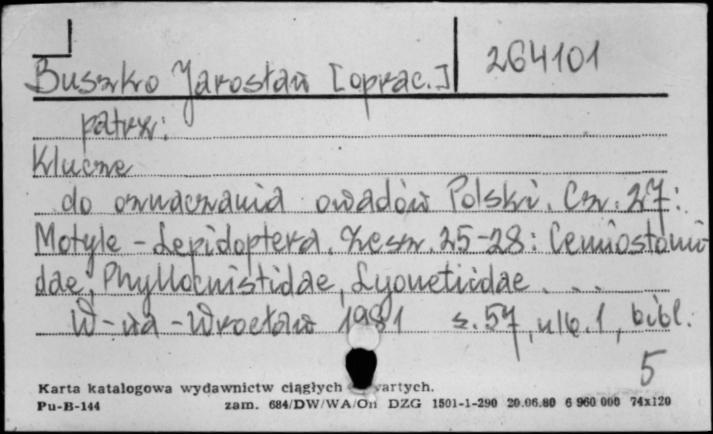 Buszko Jarosław [oprac.] 264101
patrz:
Klucze
do oznaczania owadów Polski. Cz. 27:
Motyle - Lepidoptera. Zesz. 25-28: Cemiostomi-
dae, Phyllocnistidae, Lyonetiidae . . .
W-wa - Wrocław 1981 s. 57, nlb. 1, bibl.
5
Karta katalogowa wydawnictw ciągłych
Pu-B-144 zam. 684/DW/WA/On DZG 1501-1-290 20.06.80 6 960 000 74x120